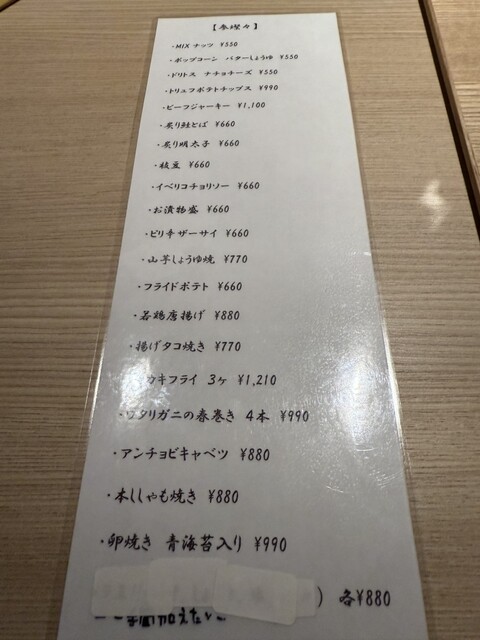 【参燦々】
・MIX ナッツ ¥550
・ポップコーン バターしょうゆ ¥550
・ドリトス ナチョチーズ ¥550
・トリュフポテトチップス ¥990
・ビーフジャーキー ¥1,100
・炙り鮭とば ¥660
・炙り明太子 ¥660
・枝豆 ¥660
・イベリコチョリソー ¥660
・お漬物盛 ¥660
・ピリ辛ザーサイ ¥660
・山芋しょうゆ焼 ¥770
・フライドポテト ¥660
・若鶏唐揚げ ¥880
・揚げタコ焼き ¥770
カキフライ 3ヶ ¥1,210
・ワタリガニの春巻き 4本 ¥990
・アンチョビキャベツ ¥880
・本ししゃも焼き ¥880
・卵焼き 青海苔入り ¥990
) 各¥880